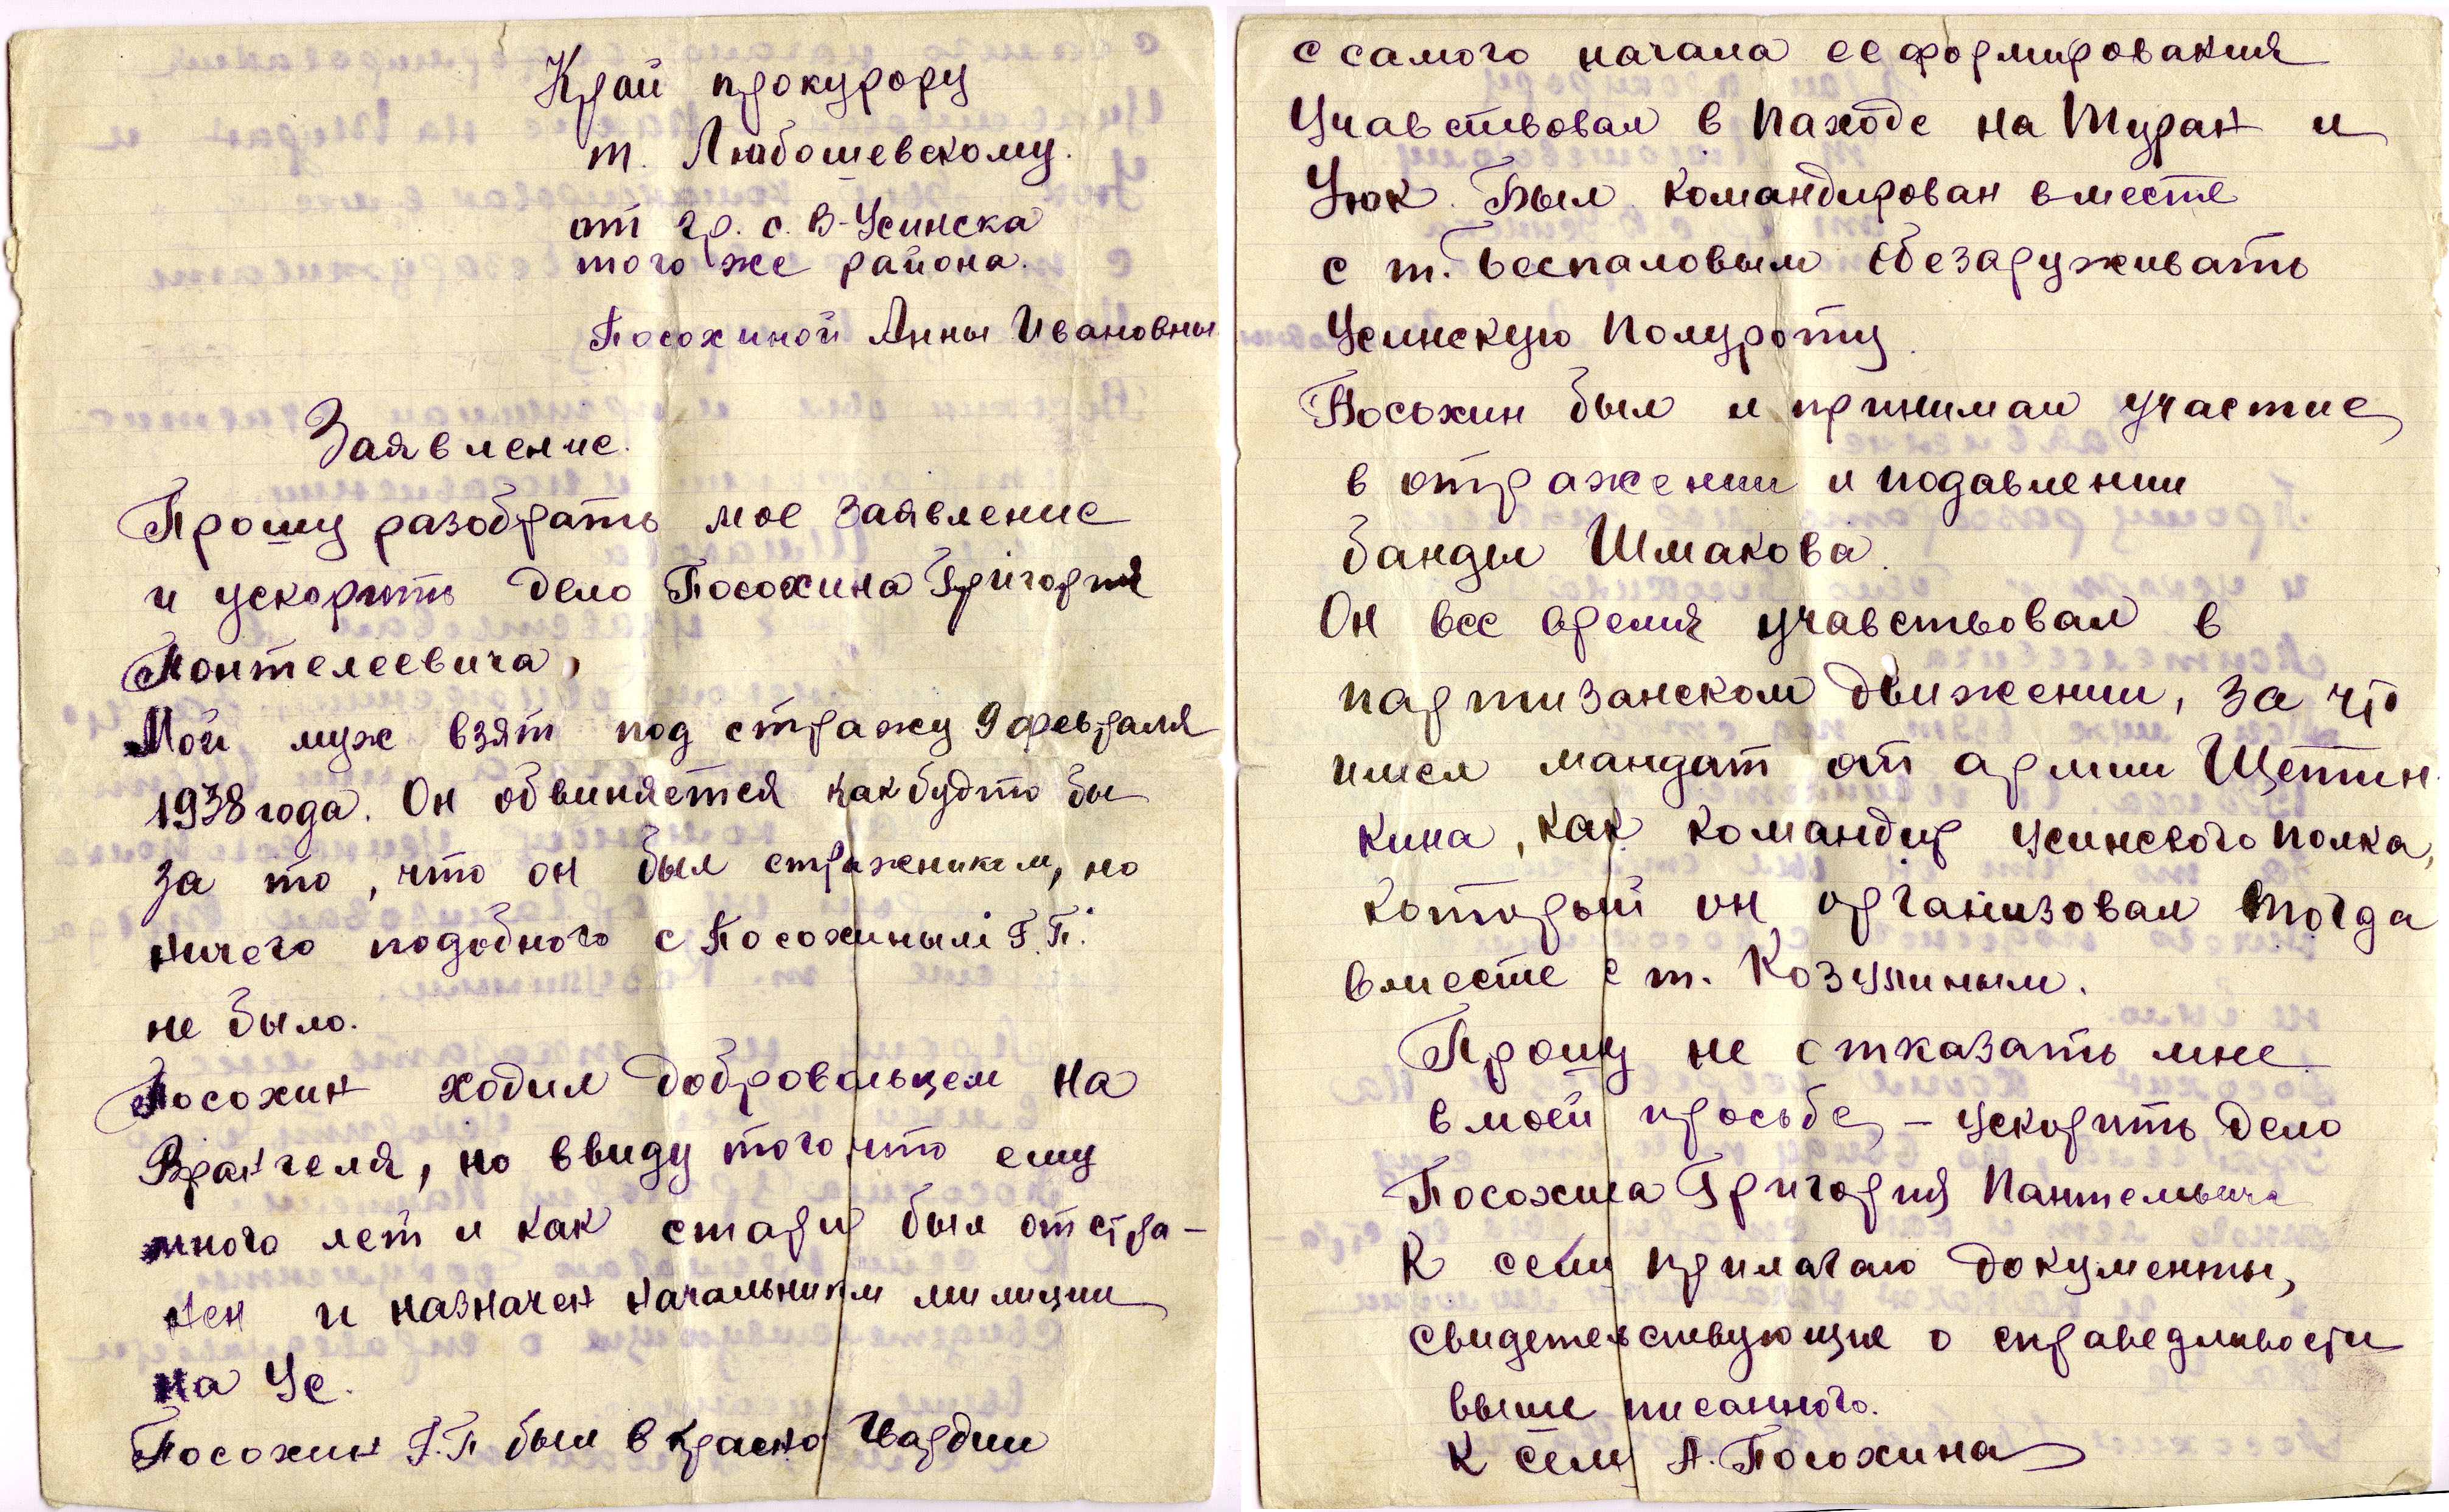 Край прокурору
т. Любошевскому.
от гр. с. В-Усинска
того же района.
Посохиной Анны Ивановны
Заявление.
Прошу разобрать мое заявление
и ускорить дело Посохина Григория
Понтелеевича,
Мой муж взят под стражу 9 февраля
1938 года. Он обвиняется как будто бы
за то, что он был стражником, но
ничего подобного с Посохиным Г.П.
не было.
Посохин ходил добровольцем на
Врангеля, но ввиду того что ему
много лет и как старик был отстра-
нен и назначен начальником милиции
на Ус.
Посохин Г.П был в красно гвардии
с самого начала ее формирования
Учавствовал в Паходе на Туран и
Уюк. Был командирован вместе
с т. Беспаловым обезаруживать
Усинскую Полуроту.
Посохин был и принимал участие
в отражении и подавлении
банды Шмакова.
Он все время учавствовал в
партизанском движении, за что
имел мандат от армии Щетин-
кина, как командир Усинского полка,
который он организовал тогда
вместе с т. Козулиным.
Прошу не отказать мне
в моей просьбе – ускорить дело
Посохина Григория Пантельича
К сему прилагаю документы,
свидетельствующие о справедливости
выше писанного.
К сему А. Посохина